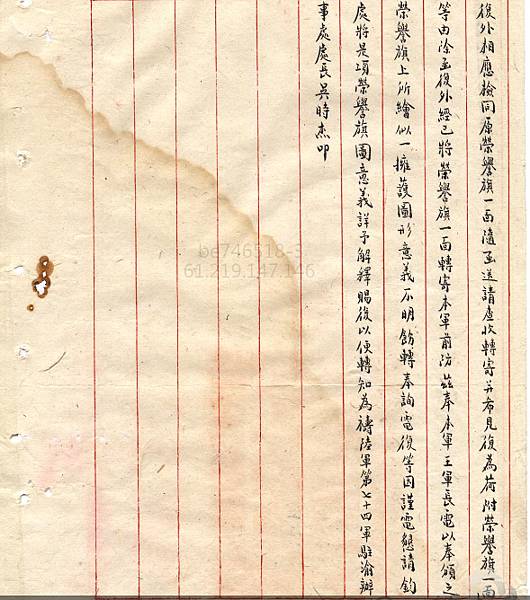 復外相應檢同原榮譽旗一面隨函送請查收轉寄并希見復為荷附榮譽旗一面
等由除函復外經已將榮譽旗一面轉寄本軍前防茲奉本軍王軍長電以奉頒之
榮譽旗上所繪似一擁護圖形意義不明飭轉奉詢電復等因謹電懇請鈞
處將是項榮譽旗圖意義詳予解釋賜復以便轉知為禱陸軍第七十四軍駐渝辦
事處處長吳時杰叩
be746518-3
61.219.147.146